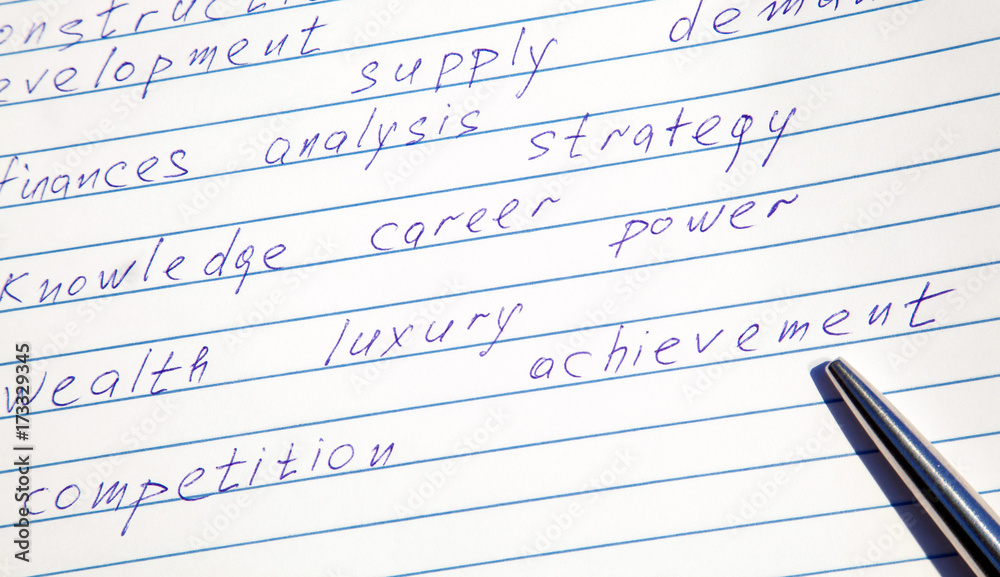 onstructi
evelopment supply deman
finances analysis strategy
knowledge career power
wealth luxury achievement
competition
Adobe Stock | #173329345